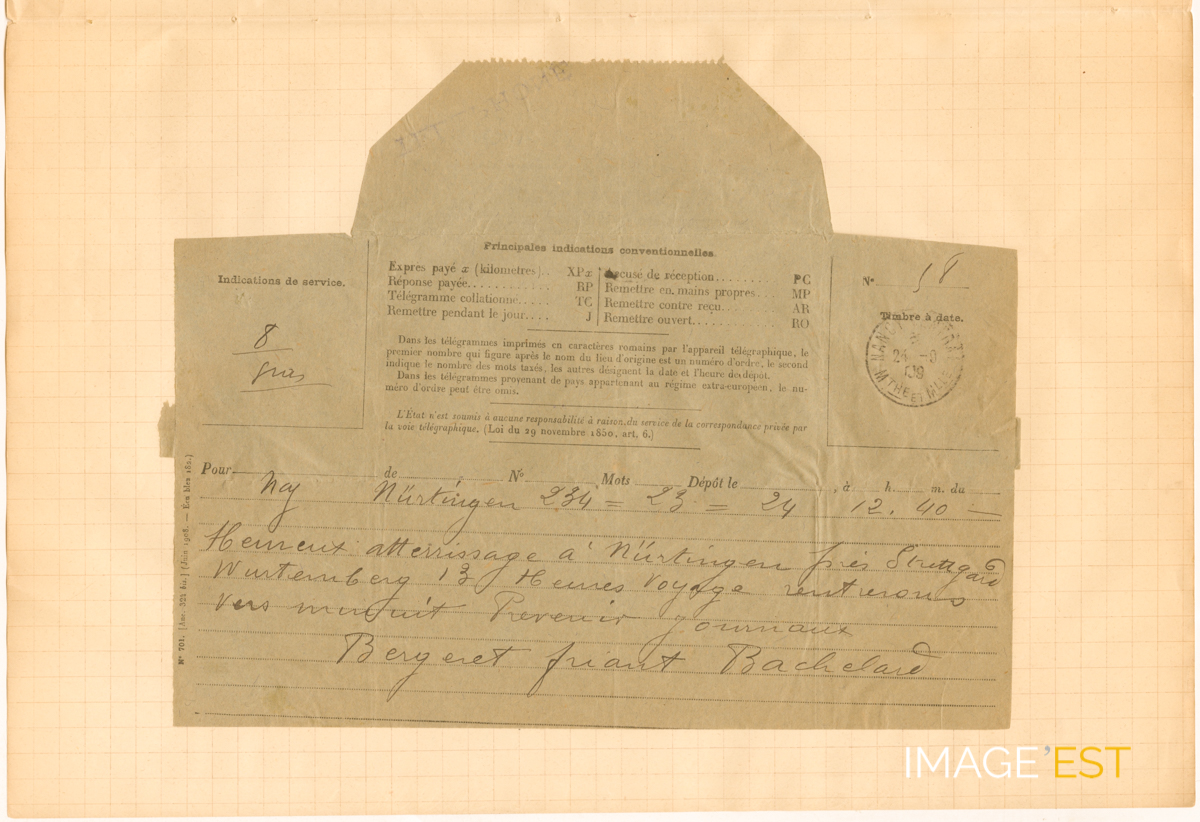 Principales indications conventionnelles.
Indications de service.
8
Exprès payé x (kilometres).. XPx
Réponse payée............ RP
Télégramme collationne..... TC
Remettre pendant le jour.... J
Accusé de réception........ PC
Remettre en mains propres... MP
Remettre contre reçu........ AR
Remettre ouvert............ RO
N° 58
Timbre à date.
NANCY
24 -8
09
MTHE ET MLLE
Dans les télégrammes imprimés en caractères romains par l'appareil télégraphique, le
premier nombre qui figure après le nom du lieu d'origine est un numéro d'ordre, le second
indique le nombre des mots taxés, les autres désignent la date et l'heure de dépôt.
Dans les télégrammes provenant de pays appartenant au régime extra-européen, le nu-
méro d'ordre peut être omis.
L'État n'est soumis à aucune responsabilité à raison du service de la correspondance privée par
la voie télégraphique. (Loi du 29 novembre 1850, art. 6.)
Pour de N° Mots Dépôt le , à h. m. du
Naj Nürtingen 234 = 23 = 24 12. 40 =
Heureux atterrissage à Nürtingen près Stuttgard
Wurtemberg 13 Heures Voyage rentrerons
vers minuit Prevenir journaux
Bergeret friant Bachelard
N° 701.
IMAGE'EST